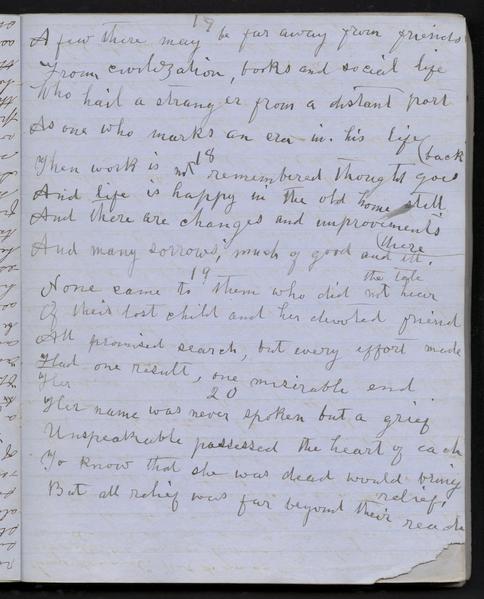 19
A few there may be far away from friends
From civilization, books and social life
Who hail a stranger from a distant port
As one who marks an era in his life
18
(back
Then work is not remembered thought goes
And life is happy in the old home still
And there are changes and improvements
(there
And many sorrows, much of good and ill.
19
the tale
None came to them who did not hear
Of their lost child and her devoted friend
All promised search, but every effort made
Had one result, one miserable end
Her
20
Her name was never spoken but a grief
Unspeakable possessed the heart of each
To know that she was dead would bring
relief,
But all relief was far beyond their reach